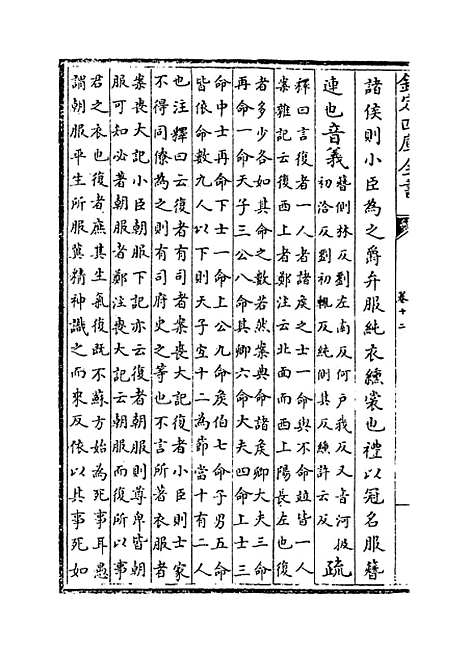 欽定四庫全書
卷十二
諸侯則小臣為之爵弁服純衣纁裳也禮以冠名服簪
連也音義簪側林反劉左南反何戸我反又音河扱
初洽反劉初輒反純側其反纁許云反疏
釋曰言復者一人者諸侯之士一命與不命並皆一人
案雜記云復西上者鄭注云北面而西上陽長左也復
者多少各如其命之數若然案典命諸侯卿大夫三命
再命一命天子三公八命其卿六命大夫四命上士三
命中士再命下士一命上公九命侯伯七命子男五命
皆依命數九人以下則天子宜十二為節當十有二人
也注釋曰云復者有司者案喪大記復者小臣則士家
不得同僚為之則有司府史之等也不言所著衣服者
案喪大記小臣朝服下記亦云復者朝服則尊卑皆朝
服可知必著朝服者鄭注喪大記云朝服而復所以事
君之衣也復者庶其生氣復既不蘇方始為死事耳愚
謂朝服平生所服冀精神識之而來反依以其事死如